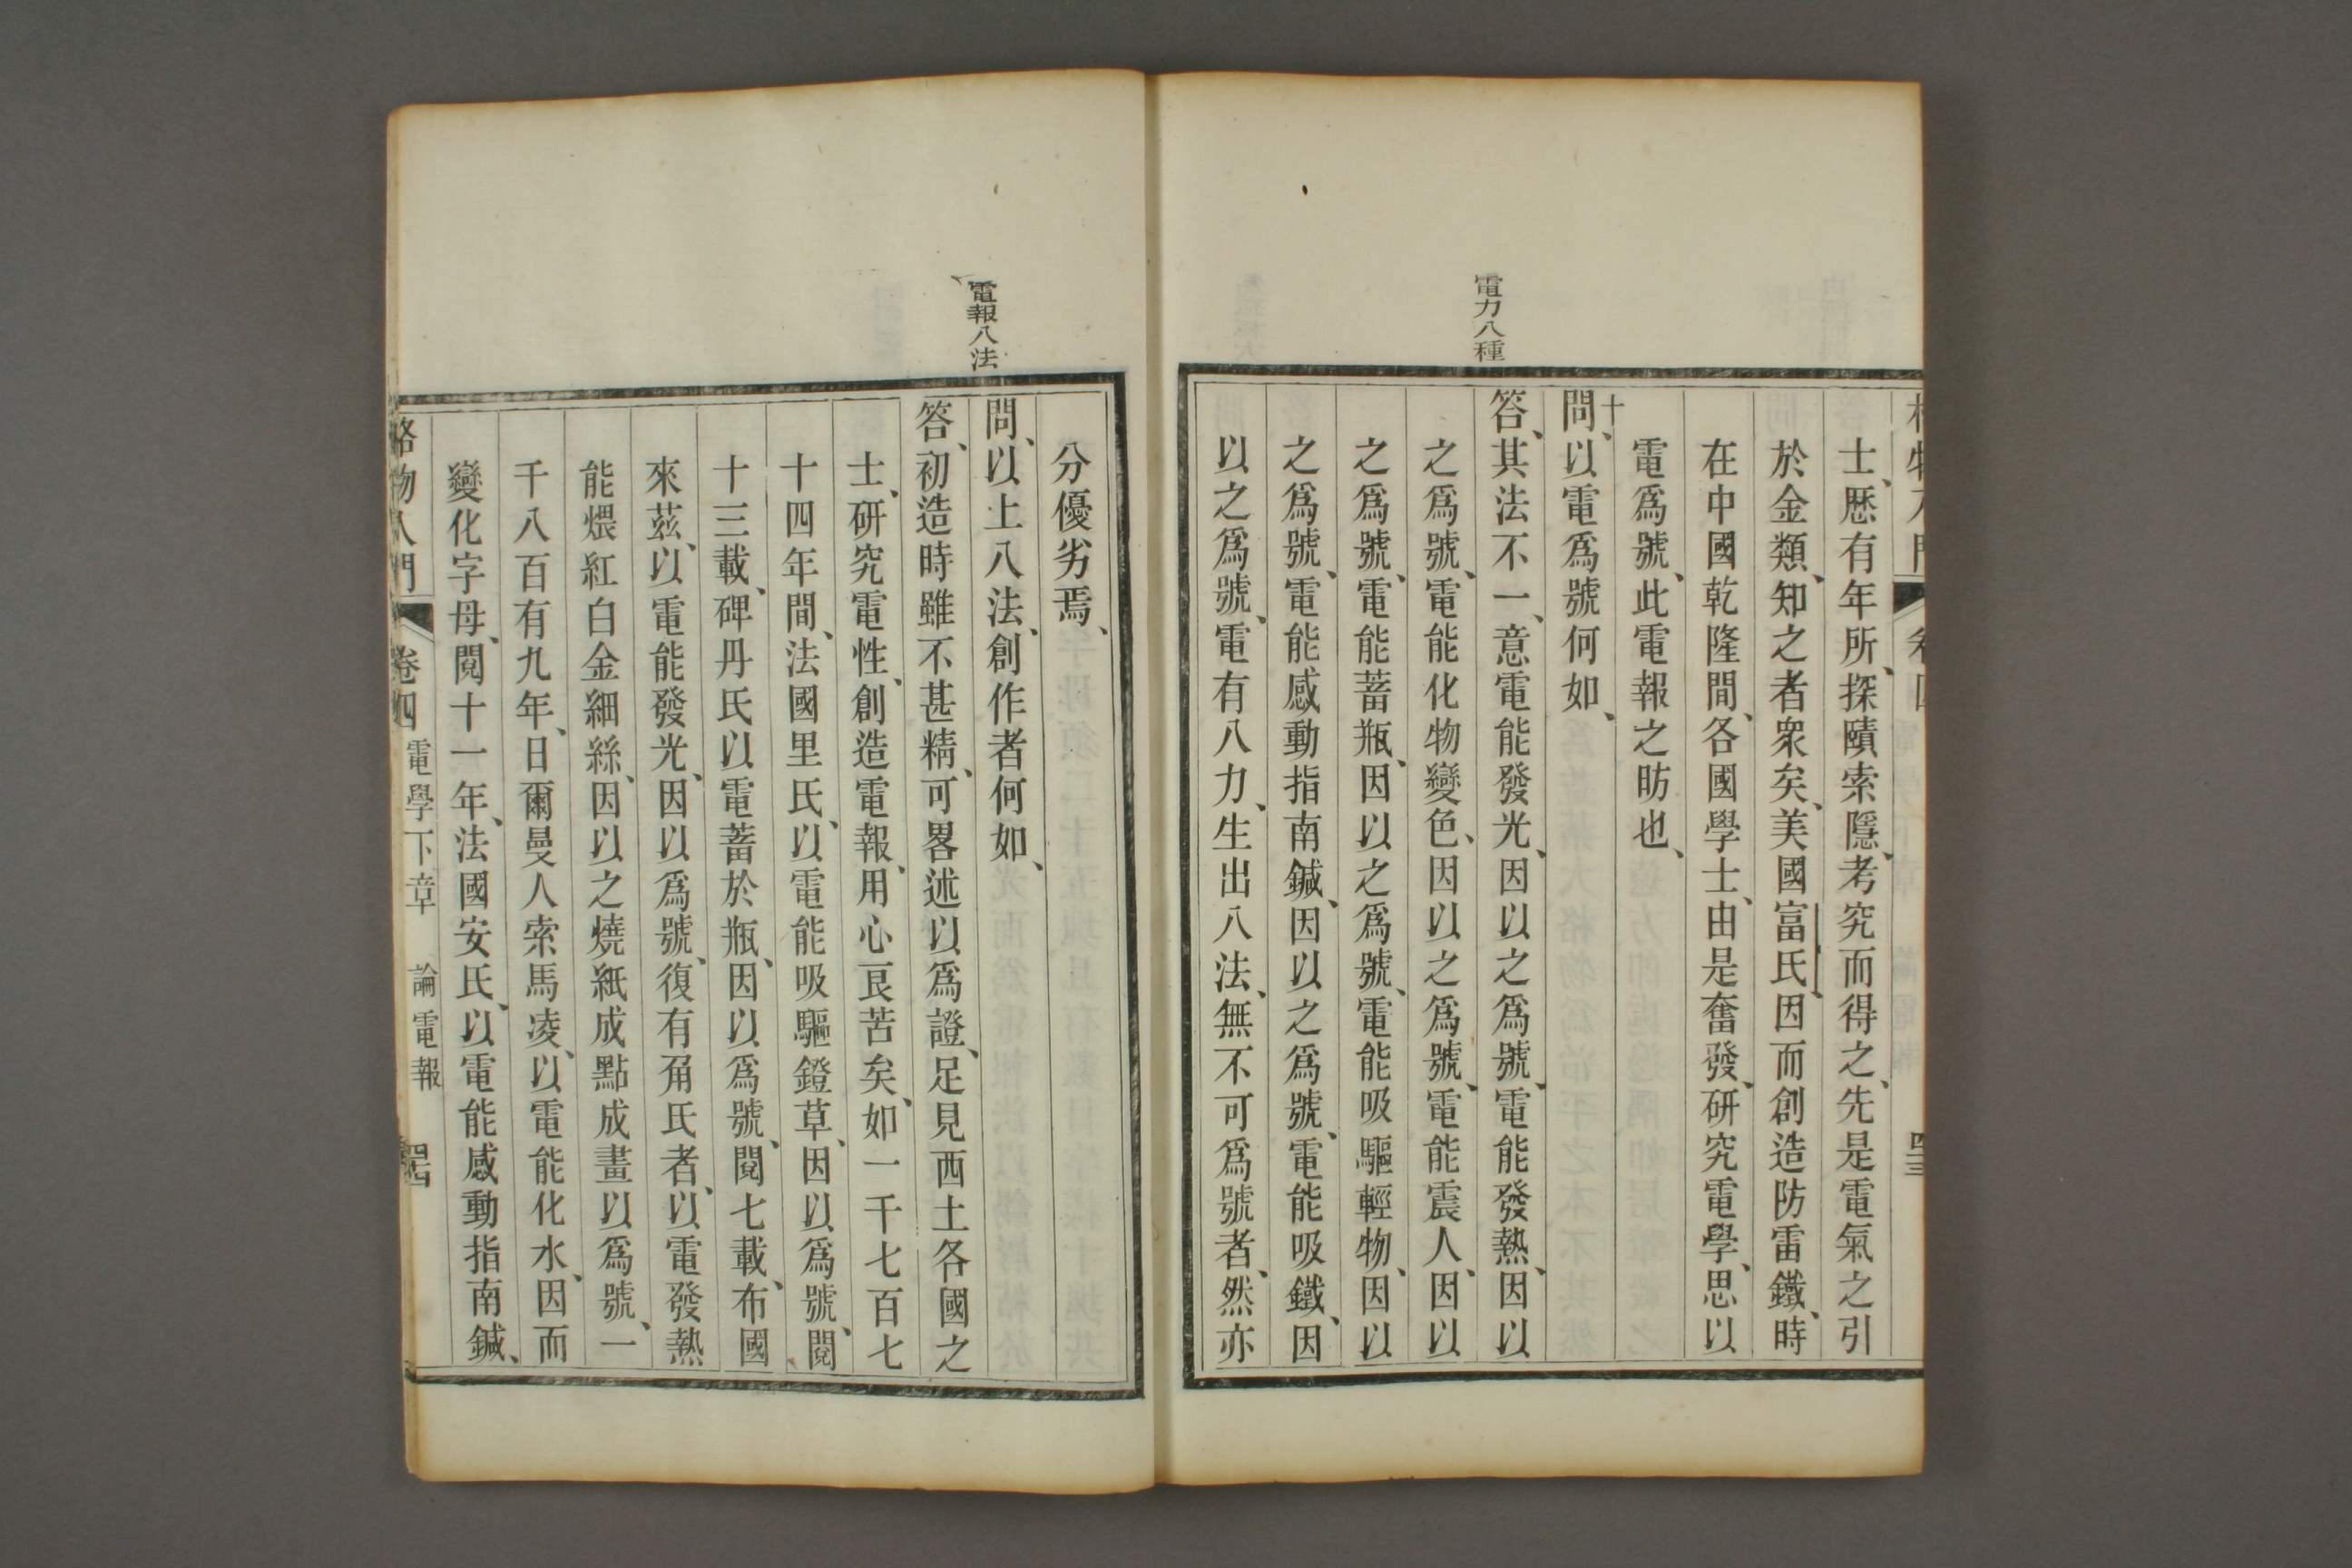 格物入門 卷四 電學下章 論電報 四三
士、歷有年所、探賾索隱、考究而得之、先是電氣之引
於金類、知之者衆矣、美國富氏、因而創造防雷鐵、時
在中國乾隆間、各國學士、由是奮發、研究電學、思以
電爲號、此電報之昉也、
十
問、以電爲號何如、
電力八種
答、其法不一、意電能發光、因以之爲號、電能發熱、因以
之爲號、電能化物變色、因以之爲號、電能震人、因以
之爲號、電能蓄瓶、因以之爲號、電能吸驅輕物、因以
之爲號、電能感動指南鍼、因以之爲號、電能吸鐵、因
以之爲號、電有八力、生出八法、無不可爲號者、然亦
分優劣焉、
電報八法
問、以上八法、創作者何如、
答、初造時雖不甚精、可畧述以爲證、足見西土各國之
士、研究電性、創造電報、用心良苦矣、如一千七百七
十四年間、法國里氏、以電能吸驅鐙草、因以爲號、閱
十三載、碑丹氏以電蓄於瓶、因以爲號、閱七載、布國
來茲、以電能發光、因以爲號、復有甭氏者、以電發熱
能煨紅白金細絲、因以之燒紙成點成畫以爲號、一
千八百有九年、日爾曼人索馬凌、以電能化水、因而
變化字母、閱十一年、法國安氏、以電能感動指南鍼、
格物入門 卷四 電學下章 論電報 四四